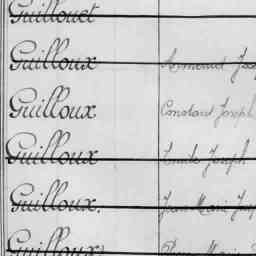 Guillouet
Guilloux Armand Jose
Guilloux Constant Joseph
Guilloux Emile Joseph
Guilloux. Jean Marie Jose
Guilloux Marie